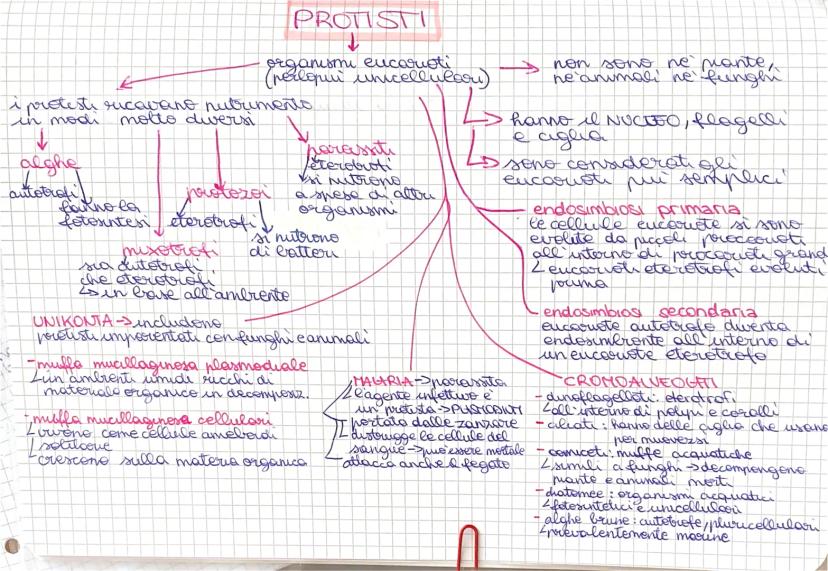 PROTISTI
organismi eucarioti
(perlopiù unicellulari)
non sono nè piante,
nè animali nè funghi
hanno il NUCLEO, flagelli
e ciglia
sono considerati gli
eucarioti più semplici
i protisti ricavano nutrimento
in modi molto diversi
alghe
autotrofi
fanno la
fotosintesi
mixotrofi
sia autotrofi
che eterotrofi
↳ in base all'ambiente
protozoi
eterotrofi
si nutrono
di batteri
parassiti
eterotrofi
si nutrono
a spese di altri
organismi
endosimbiosi primaria
le cellule eucariote si sono
evolute da piccoli procarioti
all'interno di procarioti grandi
eucarioti eterotrofi evoluti
prima
endosimbiosi secondaria
eucariote autotrofo diventa
endosimbionte all'interno di
un eucariote eterotrofo
UNIKONTA → includono
protisti imparentati con funghi e animali
- muffa mucillaginosa plasmodiale
in ambienti umidi ricchi di
materiale organico in decomposiz.
- muffa mucillaginosa cellulari
vivono come cellule ameboidi
solitarie
crescono sulla materia organica
MALARIA → parassita
l'agente infettivo è
un protista →
portato dalle zanzare
distrugge le cellule del
sangue → può essere mortale
attacca anche il fegato
CROMOALVEOLATI
- dinoflagellati: eterotrofi
all'interno di polipi e coralli
- ciliati: hanno delle ciglia che usano
per muoversi
- oomiceti: muffe acquatiche
simili a funghi → decompongono
piante e animali morti
- diatomee: organismi acquatici
fotosintetici e unicellulari
- alghe brune: autotrofe, pluricellulari
prevalentemente marine